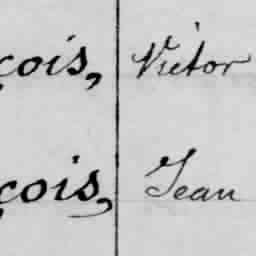 çois, Victor
çois, Jean